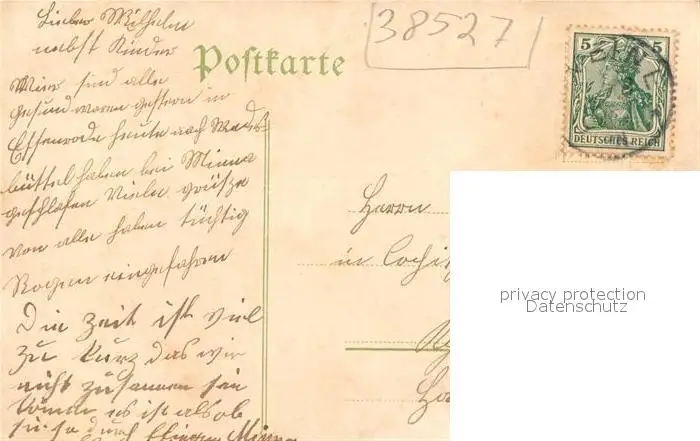 Lieber Wilhelm
nebst Kinder
Wier sind alle
gesund waren gestern in
Essenrode heute nach Wedes
büttel haben bei Minna
geschlafen Viele grüsze
von alle haben tüchtig
Rogen eingefahren
Die Zeit ist viel
zu kurz das wir
nicht zusammen sein
könne es ist als ob
durch Minna
Postkarte
38527
5 5
DEUTSCHES REICH
Herrn
in
privacy protection
Datenschutz